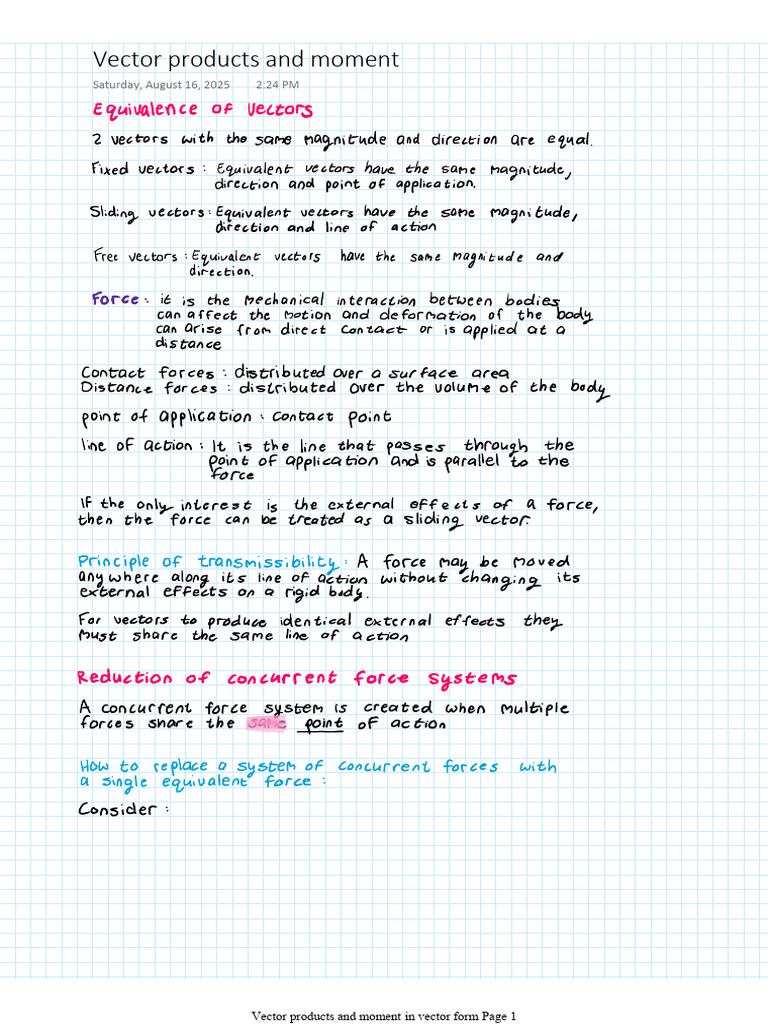 Vector products and moment
Saturday, August 16, 2025 2:24 PM
Equivalence of vectors
2 vectors with the same magnitude and direction are equal.
Fixed vectors : Equivalent vectors have the same magnitude,
direction and point of application.
Sliding vectors : Equivalent vectors have the same magnitude,
direction and line of action
Free vectors : Equivalent vectors have the same magnitude and
direction.
Force : it is the mechanical interaction between bodies
can affect the motion and deformation of the body
can arise from direct contact or is applied at a
distance
Contact forces : distributed over a surface area
Distance forces : distributed over the volume of the body
point of application : contact point
line of action : It is the line that passes through the
point of application and is parallel to the
force
If the only interest is the external effects of a force,
then the force can be treated as a sliding vector.
Principle of transmissibility : A force may be moved
anywhere along its line of action without changing its
external effects on a rigid body.
For vectors to produce identical external effects they
must share the same line of action
Reduction of concurrent force systems
A concurrent force system is created when multiple
forces share the same point of action
How to replace a system of concurrent forces with
a single equivalent force :
Consider :
Vector products and moment in vector form Page 1